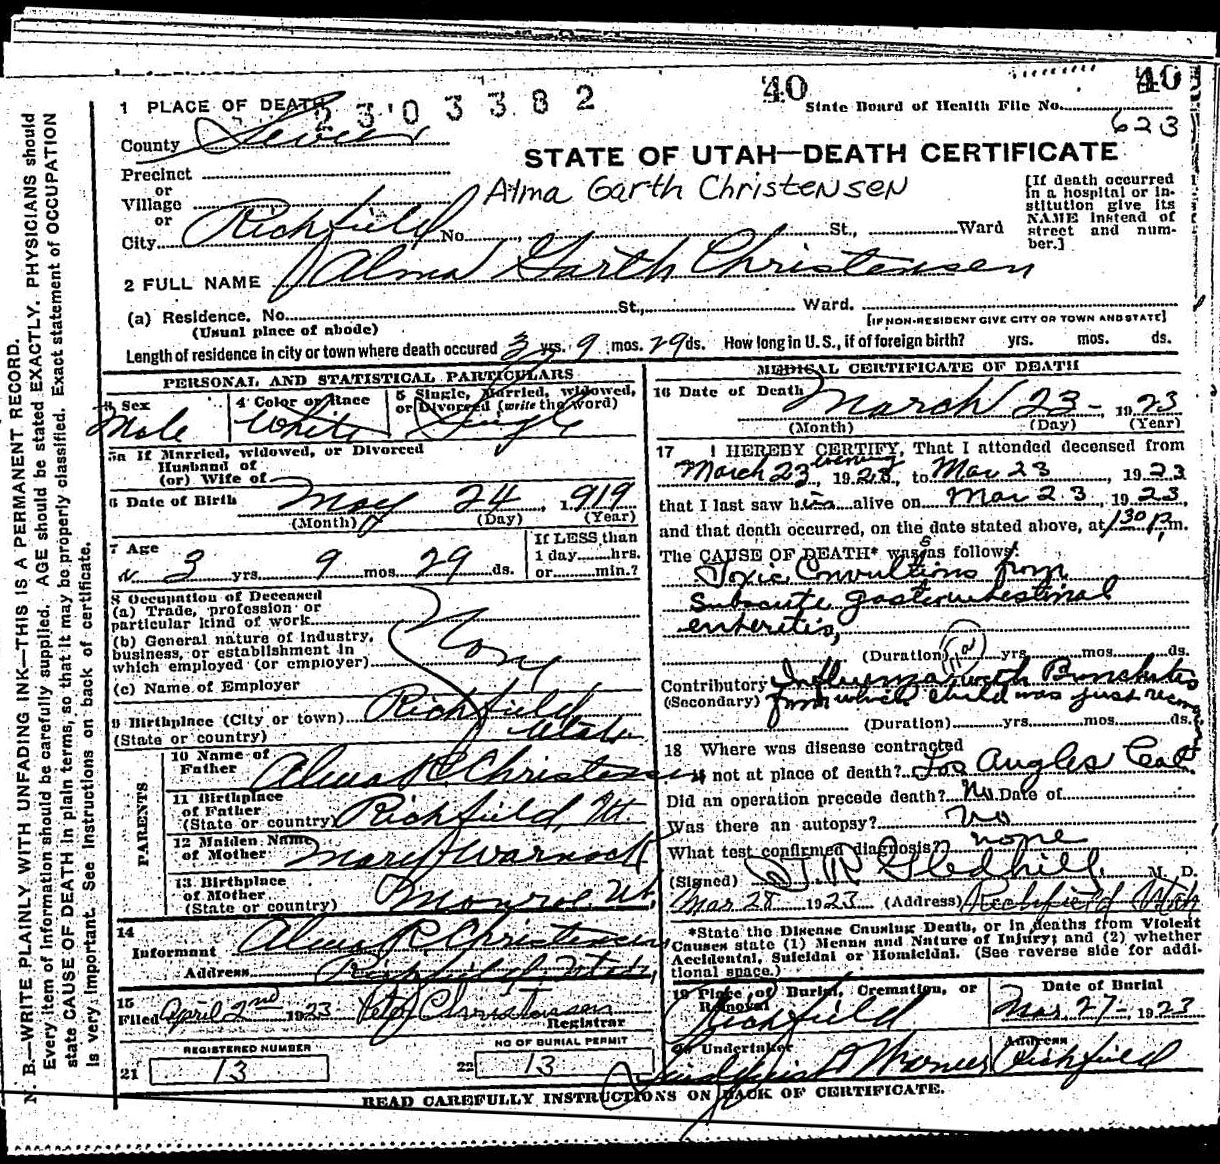 1 PLACE OF DEATH
2303382
40
40
State Board of Health File No.
623
County Sevier
STATE OF UTAH—DEATH CERTIFICATE
Precinct
or
Village
or
City Richfield No. St., Ward
Alma Garth Christensen
[If death occurred
in a hospital or in-
stitution give its
NAME instead of
street and num-
ber.]
2 FULL NAME Alma Garth Christensen
(a) Residence. No. St., Ward.
(Usual place of abode)
[IF NON-RESIDENT GIVE CITY OR TOWN AND STATE]
Length of residence in city or town where death occured 3 yrs. 9 mos. 29 ds. How long in U. S., if of foreign birth? yrs. mos. ds.
PERSONAL AND STATISTICAL PARTICULARS
3 Sex
Male
4 Color or Race
White
5 Single, Married, widowed,
or Divorced (write the word)
Single
5a If Married, widowed, or Divorced
Husband of
(or) Wife of
6 Date of Birth May 24, 1919
(Month) (Day) (Year)
7 Age
3 yrs. 9 mos. 29 ds.
If LESS than
1 day hrs.
or min.?
8 Occupation of Deceased
(a) Trade, profession or
particular kind of work
(b) General nature of industry,
business, or establishment in
which employed (or employer)
(c) Name of Employer
9 Birthplace (City or town) Richfield
(State or country) Utah
PARENTS
10 Name of
Father Alma P Christensen
11 Birthplace
of Father
(State or country) Richfield, Ut
12 Maiden Name
of Mother Mary Warnock
13 Birthplace
of Mother
(State or country) Monroe Ut.
14
Informant Alma P Christensen
Address Richfield Utah,
15
Filed April 2nd 1923 Peter Christensen
Registrar
REGISTERED NUMBER
21 13
NO OF BURIAL PERMIT
22 13
MEDICAL CERTIFICATE OF DEATH
16 Date of Death March 23 - 1923
(Month) (Day) (Year)
17 I HEREBY CERTIFY, That I attonded deceased from
March 23 evening, 1923, to Mar 23, 1923
that I last saw him alive on Mar 23, 1923,
and that death occurred, on the date stated above, at 1 30 P.m.
The CAUSE OF DEATH* was as follows:
Toxic Convultions from
Subacute gastrointestinal
enteritis,
(Duration) yrs. mos. ds.
Contributory Influenza with Bronchitis
(Secondary) from which child was just recov
(Duration) yrs. mos. ds.
18 Where was disease contracted
if not at place of death? Los Angles Cal
Did an operation precede death? No Date of
Was there an autopsy? No
What test confirmed diagnosis? none
(Signed) J. R Gledhill, M. D.
Mar 28 1923 (Address) Richfield Utah
*State the Disease Causing Death, or in deaths from Violent
Causes state (1) Means and Nature of Injury; and (2) whether
Accidental, Suicidal or Homicidal. (See reverse side for addi-
tional space.)
19 Place of Burial, Cremation, or
Removal
Richfield
Date of Burial
Mar. 27 - 1923
20 Undertaker
Address
Richfield
READ CAREFULLY INSTRUCTIONS ON BACK OF CERTIFICATE.
N. B.—WRITE PLAINLY WITH UNFADING INK—THIS IS A PERMANENT RECORD.
Every item of information should be carefully supplied. AGE should be stated EXACTLY. PHYSICIANS should
state CAUSE OF DEATH in plain terms, so that it may be properly classified. Exact statement of OCCUPATION
is very important. See instructions on back of certificate.